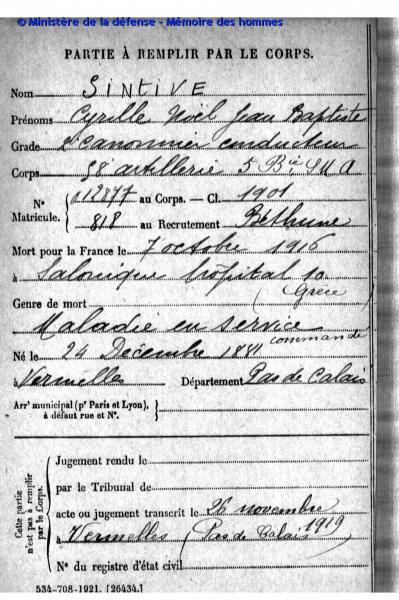 © Ministère de la défense - Mémoire des hommes
PARTIE À REMPLIR PAR LE CORPS.
Nom SINTIVE
Prénoms Cyrille Noël Jean Baptiste
Grade 2e Canonnier conducteur
Corps 58 artillerie 5 Bie, SMA
N° Matricule. { 12877 au Corps. — Cl. 1901
818 au Recrutement Béthune
Mort pour la France le 7 octobre 1916
à Salonique hôpital 10
(Grèce)
Genre de mort
Maladie en service
commandé
Né le 24 Décembre 1881
à Vermelles Département Pas de Calais
Arrt municipal (pr Paris et Lyon), à défaut rue et N°. {
Cette partie n'est pas à remplir par le Corps. {
Jugement rendu le
par le Tribunal de
acte ou jugement transcrit le 26 novembre
1919
à Vermelles (Pas de Calais)
N° du registre d'état civil
534-708-1921. [26434.]